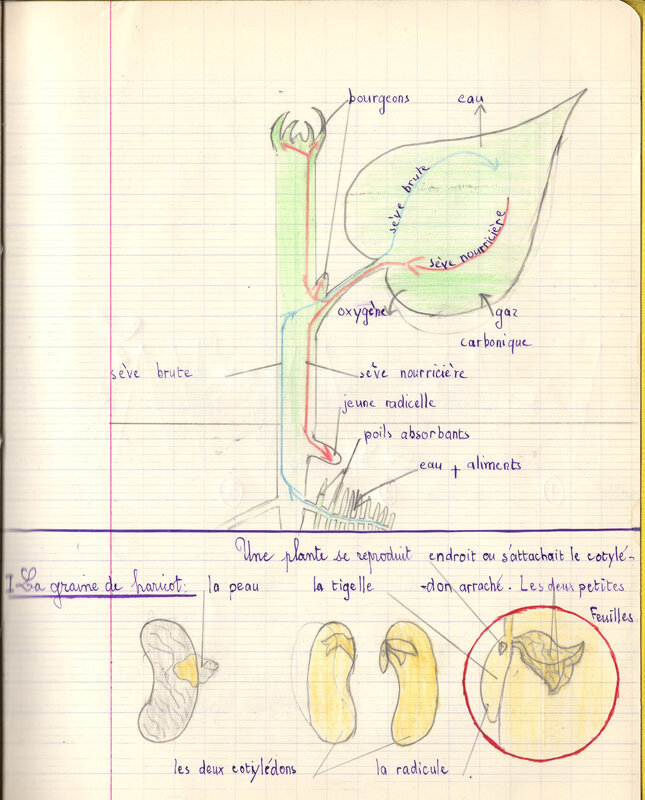 bourgeons
eau
sève brute
sève nourricière
oxygène
gaz
carbonique
sève brute
sève nourricière
jeune radicelle
poils absorbants
eau + aliments
Une plante se reproduit
I-La graine de haricot:
la peau
la tigelle
endroit ou s'attachait le cotylé-
-don arraché. Les deux petites
Feuilles
les deux cotylédons
la radicule